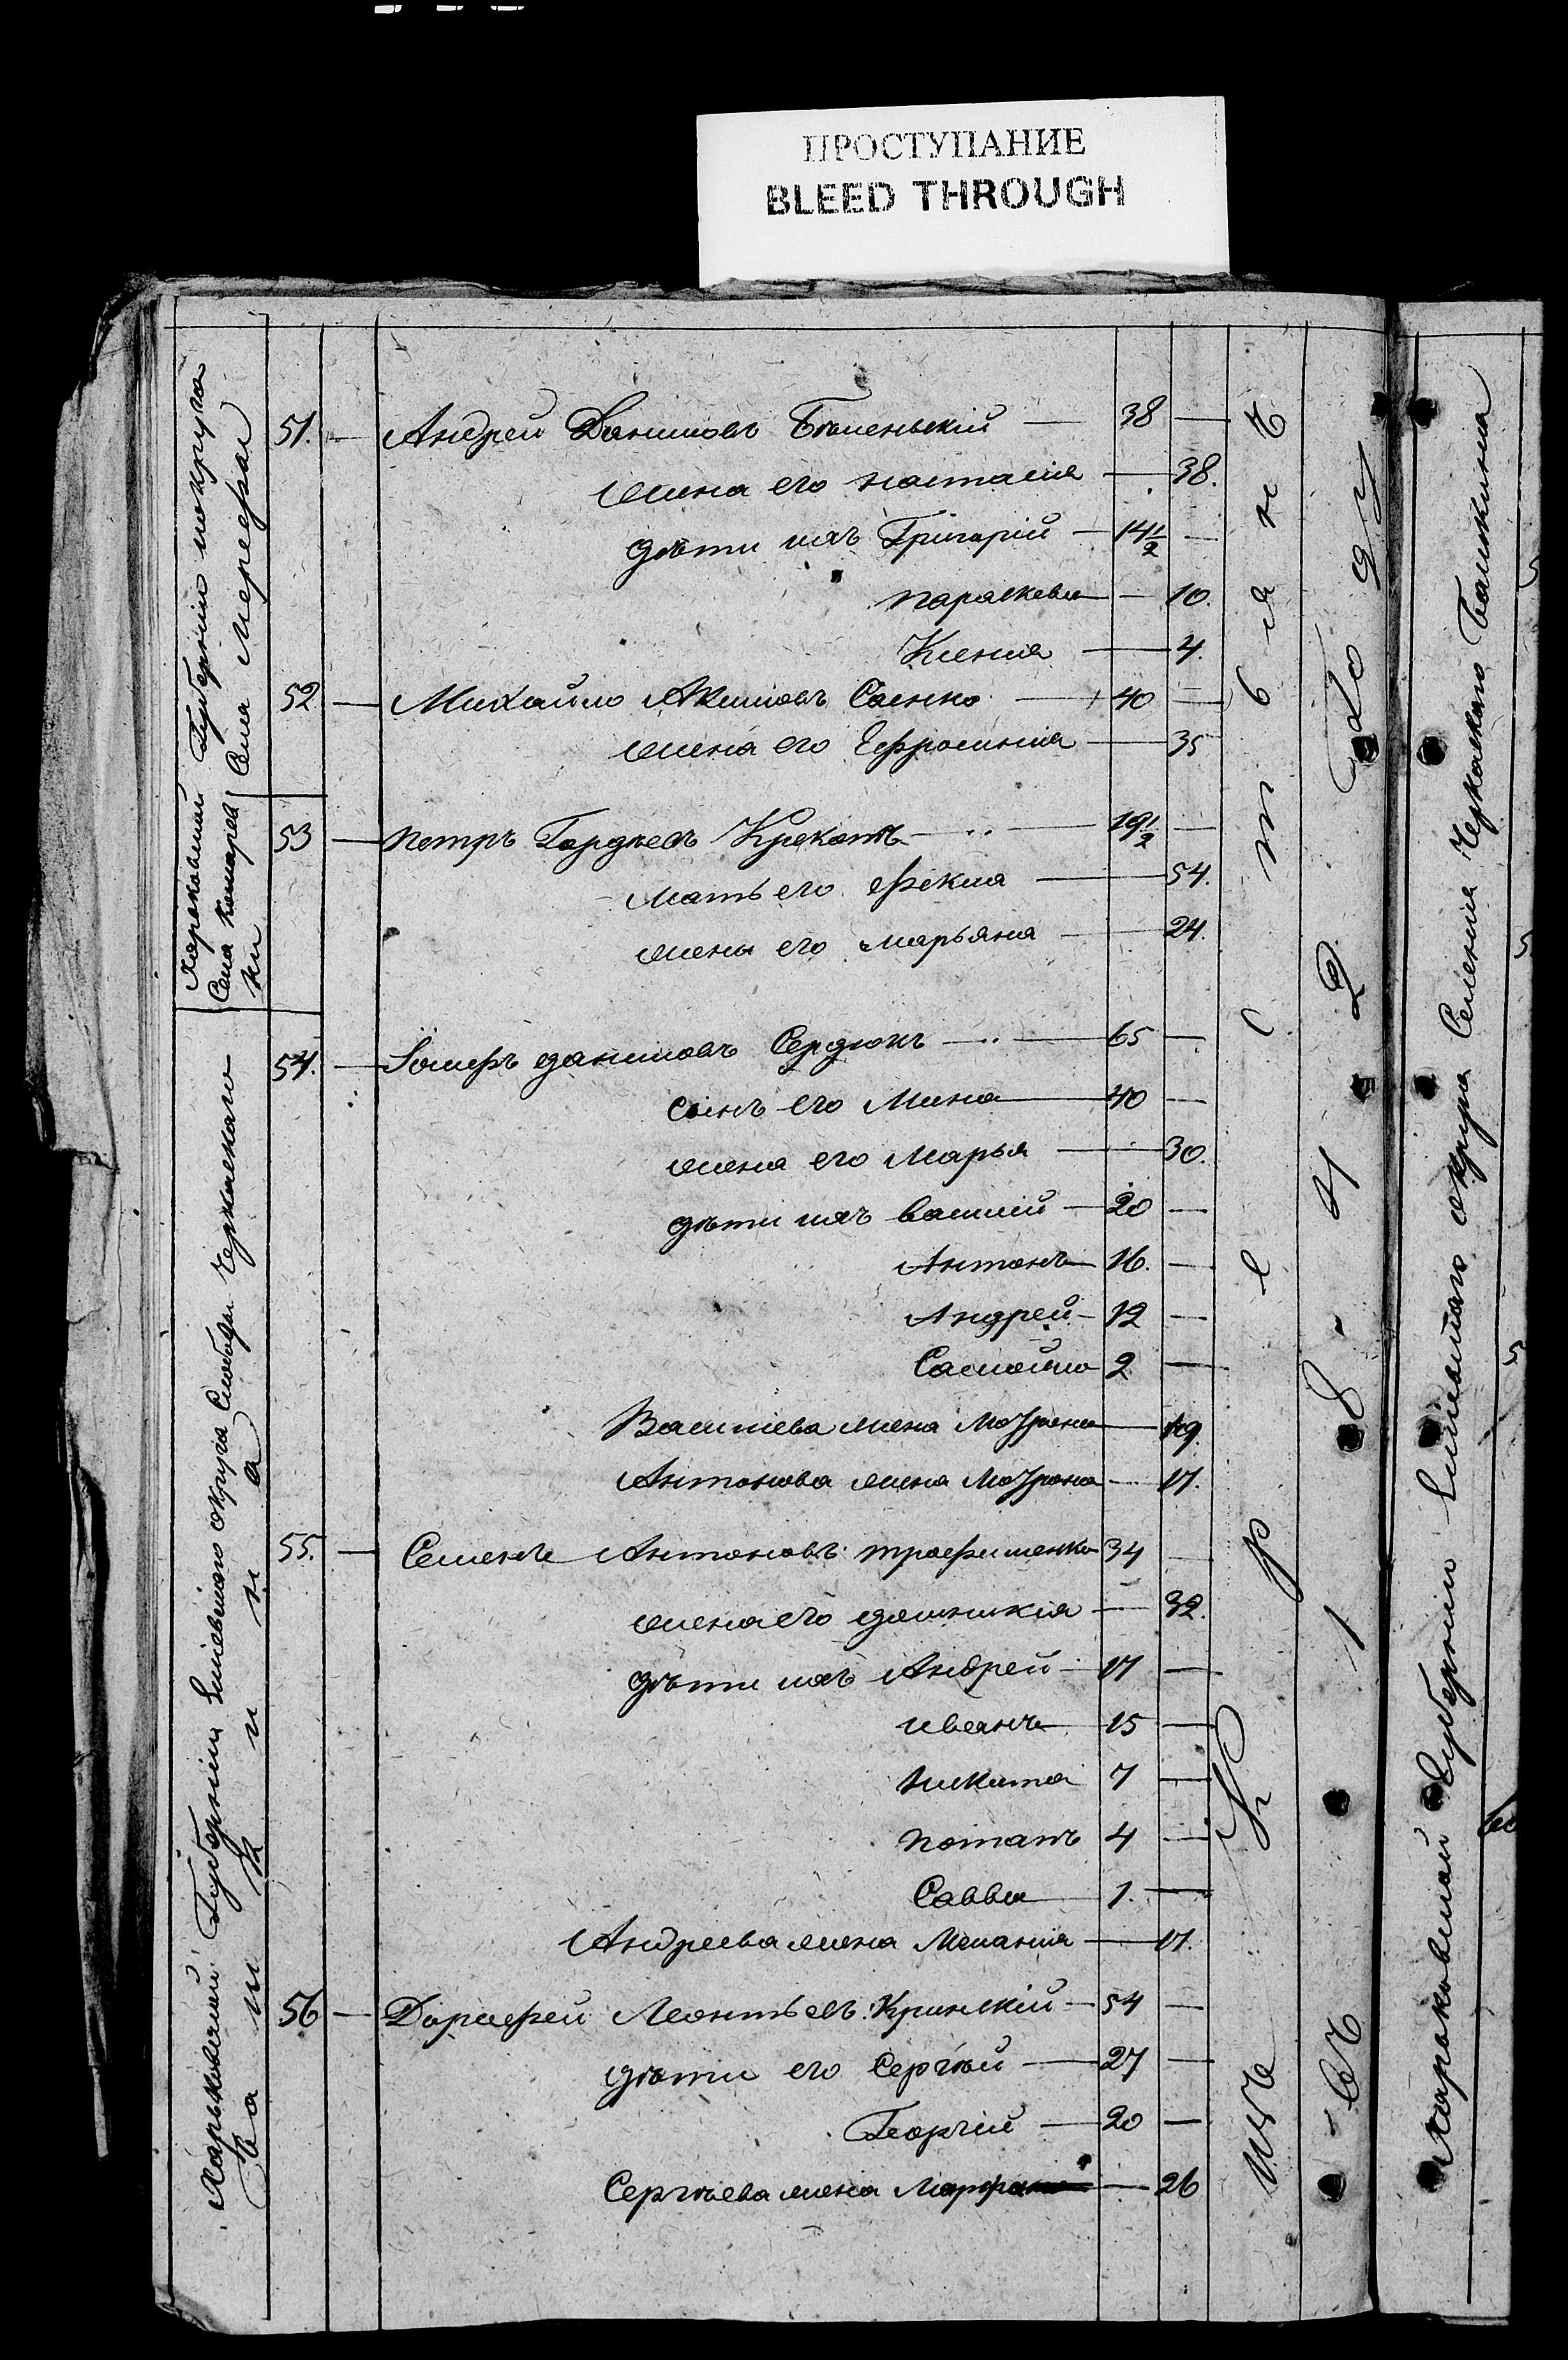 ПРОСТУПАНИЕ
BLEED THROUGH
Губерніи
Села Мерефы
51. Андрей Даниловъ Бѣленькій — 38 —
жена его настасія — 38.
дѣти ихъ Григорій — 14 1/2 —
параскева — 10.
Ксенія — 4.
52 — Михайло Акимовъ Саенко — 40 —
жена его Ефросинія — 35
Харковской
Села Комарев
ки
53 — петръ Гордѣевъ Крекотъ — 19 1/2 —
мать его Фекла — 54.
жены его марьяна — 24.
Харьковской Губерніи Зміевскаго округа Слободы Черкаскаго
Башкина
54. — Іосифъ даниловъ Сердюкъ — 65 —
сынъ его Мина — 40 —
жена его Марья — 30.
дѣти ихъ василій — 20 —
Антонъ — 16. —
Андрей — 12 —
Самойло 2 —
Василіева жена Мотрона — 19.
Антонова жена Мотрона — 17.
55. — Семенъ Антоновъ трофименко 34 —
жена его домникія — 32.
дѣти ихъ Андрей — 17 —
иванъ — 15 —
никита 7 —
потапъ 4 —
Савва — 1. —
Андреева жена Меланія — 17.
56 — Дорофей Леонтьевъ Кринскій — 54 —
дѣти его Сергѣй — 27 —
Георгій — 20 —
Сергѣева жена Марфа — 26
Изъ Крестьянъ
въ 18
году
Харьковской Губерніи Зміевскаго округа Селенія Черкаскаго Башкина